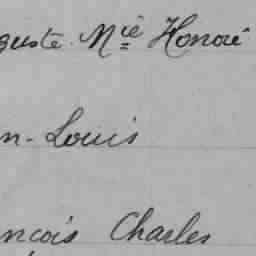 guste Mie Honoré
n-Louis
ncois Charles